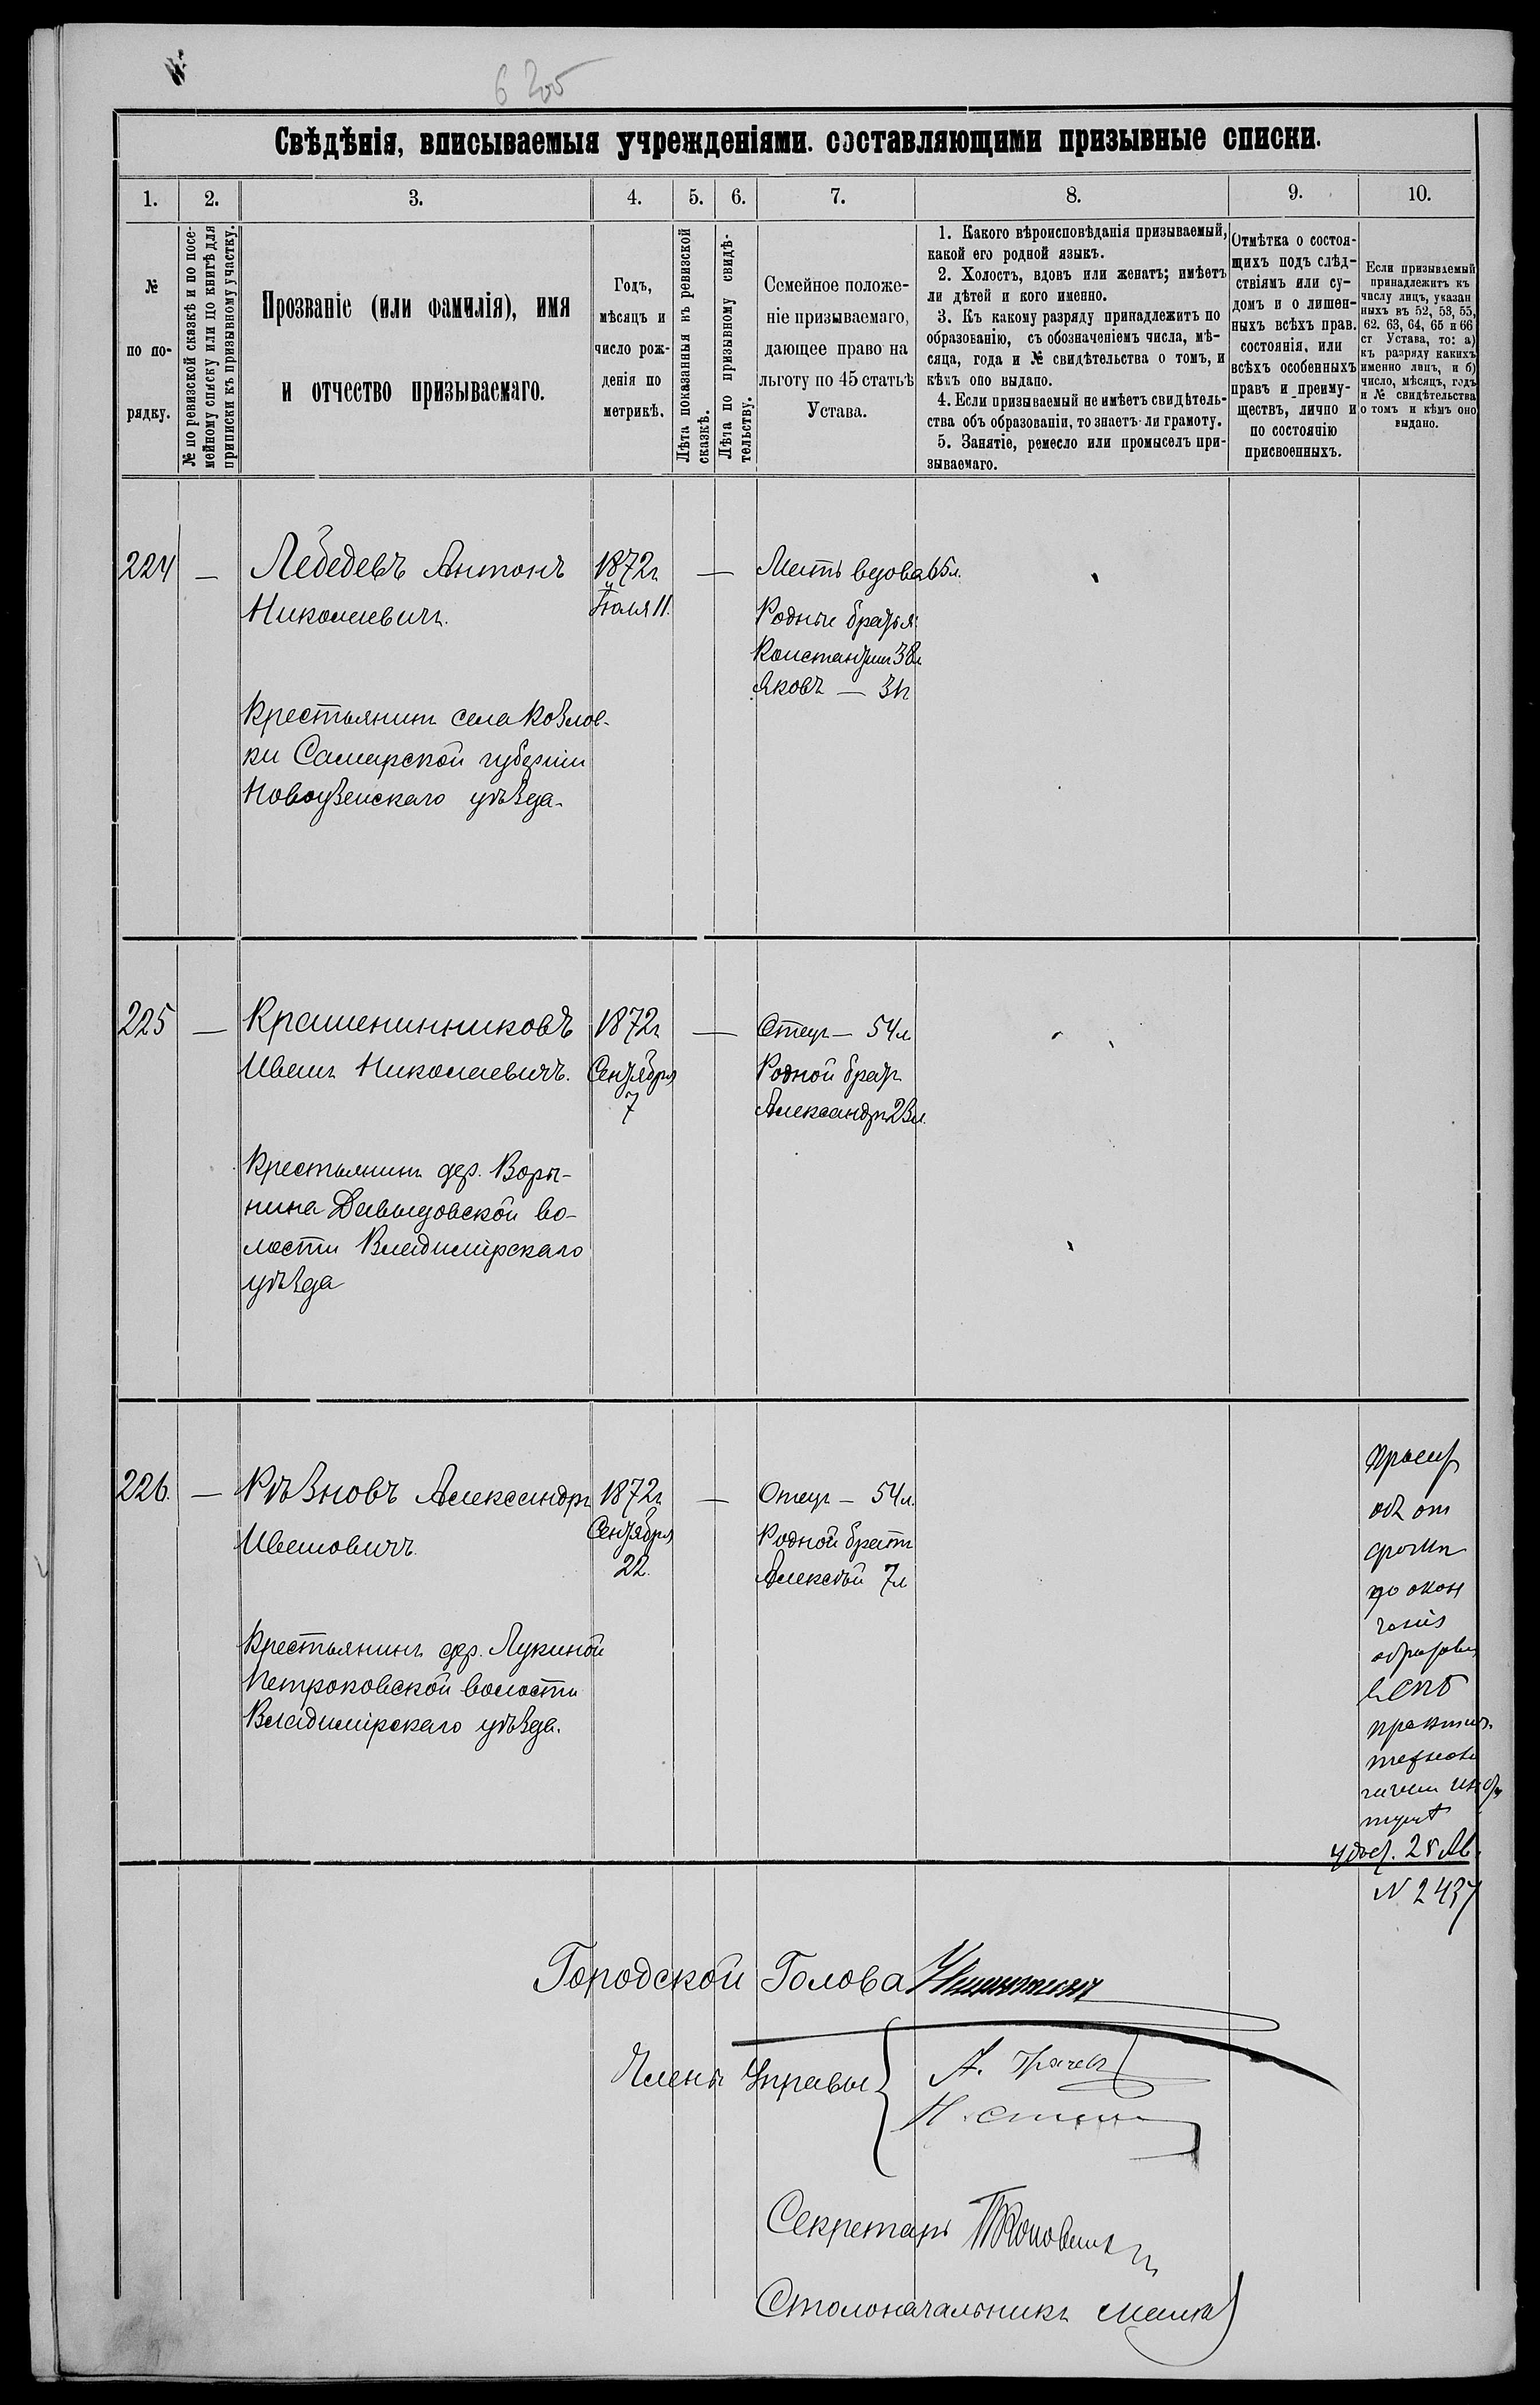 6 205
Свѣдѣнія, вписываемыя учрежденіями. составляющими призывные списки.
1. 2. 3. 4. 5. 6. 7. 8. 9. 10.
№
по по-
рядку.
№ по ревизской сказкѣ и по посе-
мейному списку или по книгѣ для
приписки къ призывному участку.
Прозваніе (или фамилія), имя
и отчество призываемаго.
Годъ,
мѣсяцъ и
число рож-
денія по
метрикѣ.
Лѣта показанныя въ ревизской
сказкѣ.
Лѣта по призывному свидѣ-
тельству.
Семейное положе-
ніе призываемаго,
дающее право на
льготу по 45 статьѣ
Устава.
1. Какого вѣроисповѣданія призываемый,
какой его родной языкъ.
2. Холостъ, вдовъ или женатъ; имѣетъ
ли дѣтей и кого именно.
3. Къ какому разряду принадлежитъ по
образованію, съ обозначеніемъ числа, мѣ-
сяца, года и № свидѣтельства о томъ, и
кѣмъ оно выдано.
4. Если призываемый не имѣетъ свидѣтель-
ства объ образованіи, то знаетъ-ли грамоту.
5. Занятіе, ремесло или промыселъ при-
зываемаго.
Отмѣтка о состоя-
щихъ подъ слѣд-
ствіямъ или су-
домъ и о лишен-
ныхъ всѣхъ прав.
состоянія, или
всѣхъ особенныхъ
правъ и преиму-
ществъ, лично и
по состоянію
присвоенныхъ.
Если призываемый
принадлежитъ къ
числу лицъ, указан
ныхъ въ 52, 53, 55,
62. 63, 64, 65 и 66
ст Устава, то: а)
къ разряду какихъ
именно лицъ, и б)
число, мѣсяцъ, годъ
и № свидѣтельства
о томъ и кѣмъ оно
выдано.
224 — Лебедевъ Антонъ 1872г — Мать вдова 65л.
Николаевичъ. Іюля 11. Родные братья:
Константинъ 38л
Яковъ — 31г
Крестьянинъ села Козлов-
ки Самарской губерніи
Новоузенскаго уѣзда.
225 — Крашенинниковъ 1872г — Отецъ — 54л
Иванъ Николаевичъ. Сентября Родной братъ
7 Александръ 23л.
Крестьянинъ дер. Воры-
нина Давыдовской во-
лости Владимірскаго
уѣзда
226. — Рѣзновъ Александръ 1872г — Отецъ — 54л.
Ивановичъ. Сентября Родной братъ
22. Алексѣй 7л
Крестьянинъ дер. Лукиной
Петроковской волости
Владимірскаго уѣзда.
Проситъ
объ от
срочкѣ
до окон
чанія
образован
въ СПБ
практич.
техноло
гичем инсти
тутѣ
удост. 25 Ав.
N 2437
Городской Голова
Члены Управы
А. Грачевъ
Н.
Секретарь
Столоначальникъ